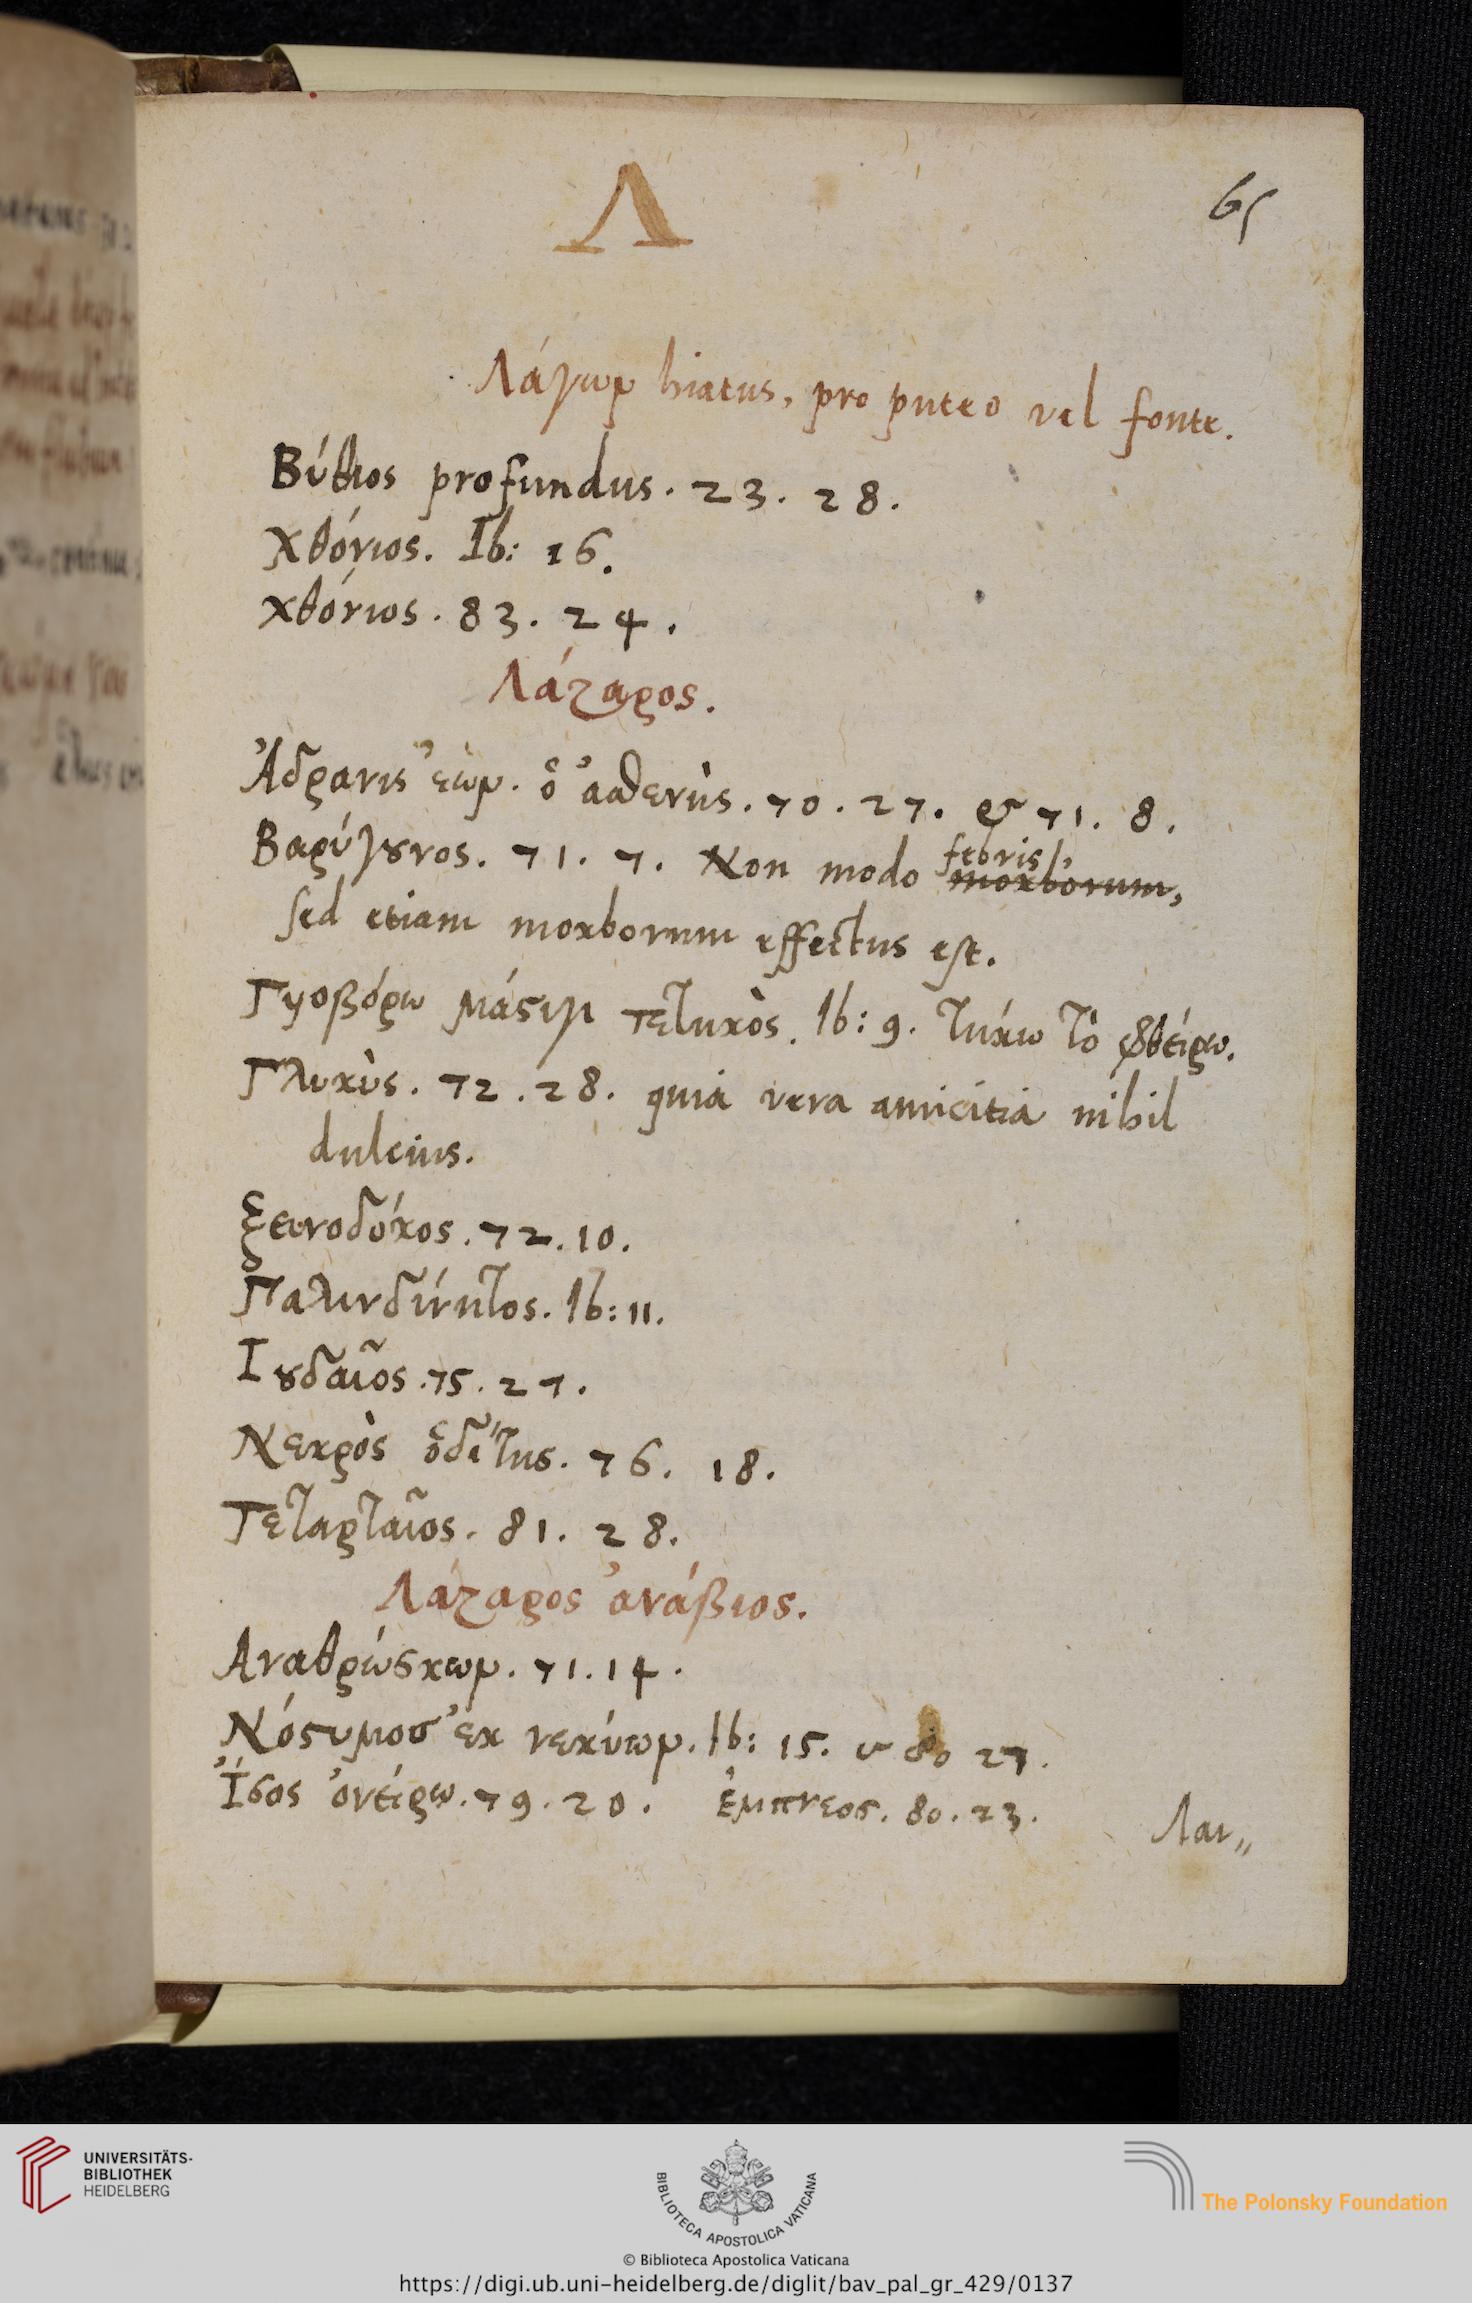 Λ
65
Λάγων hiatus, pro puteo vel fonte.
Βύθιος profundus. 23. 28.
Χθόνιος. Ib: 16.
Χθόνιος. 83. 24.
Λάζαρος.
Ἀδρανὶς ἐὼν. ὁ ἀσθενὴς. 70. 27. & 71. 8.
Βαρύγουνος. 71. 7. Non modo febris, morborum,
sed etiam morborum effectus est.
Γυοβόρω μάστιγι τετηκὸς. Ib: 9. τήκω τὸ φθείρω.
Γλυκὺς. 72. 28. quia vera amicitia nihil
dulcius.
ξεινοδόκος. 72. 10.
Παλινδίνητος. Ib: 11.
Ἰουδαῖος. 75. 27.
Νεκρὸς ὁδίτης. 76. 18.
Τεταρταῖος. 81. 28.
Λάζαρος ἀνάβιος.
Αναθρώσκων. 71. 14.
Νόστιμος ἐκ νεκύων. Ib: 15. & 80 27.
Ἴσος ὀνείρω. 79. 20. ἔμπνεος. 80. 23.
Λαι„
UNIVERSITÄTS-
BIBLIOTHEK
HEIDELBERG
BIBLIOTECA APOSTOLICA VATICANA
The Polonsky Foundation
© Biblioteca Apostolica Vaticana
https://digi.ub.uni-heidelberg.de/diglit/bav_pal_gr_429/0137